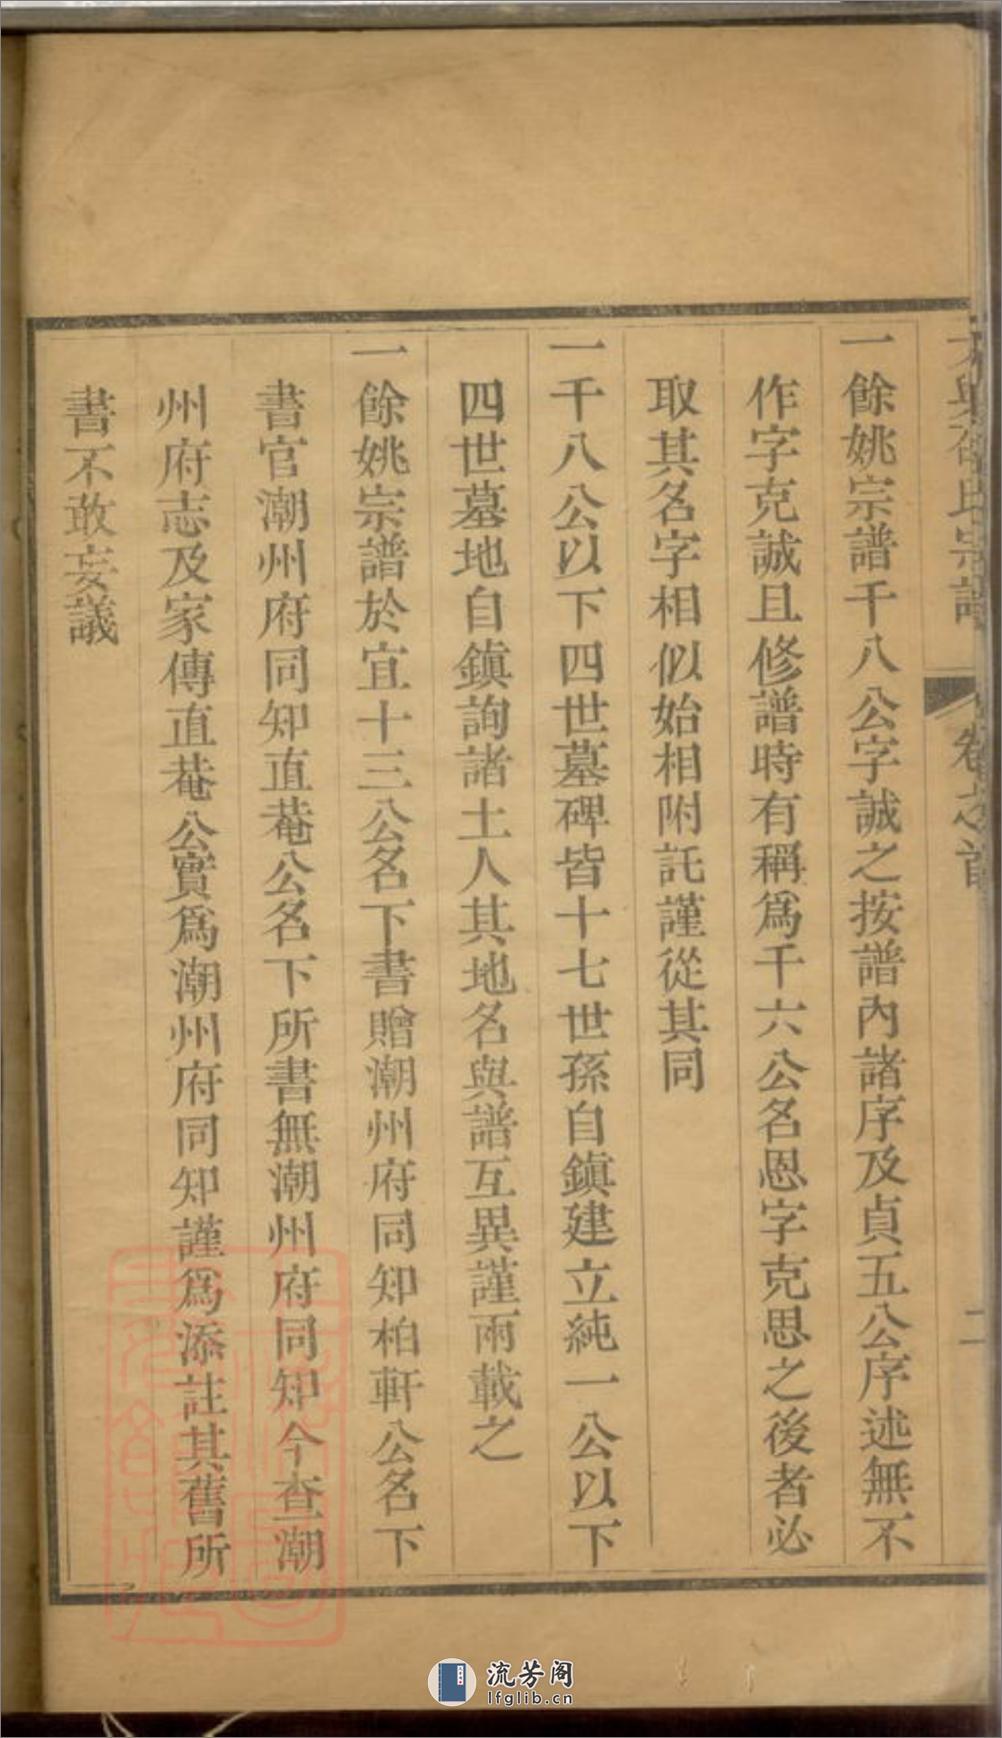 一餘姚宗譜千八公字誠之按譜內諸序及貞五公序述無不
作字克誠且修譜時有稱爲千六公名恩字克思之後者必
取其名字相似始相附託謹從其同
一千八公以下四世墓碑皆十七世孫自鎮建立純一公以下
四世墓地自鎮詢諸土人其地名與譜互異謹兩載之
一餘姚宗譜於宜十三公名下書贈潮州府同知柏軒公名下
書官潮州府同知直菴公名下所書無潮州府同知今查潮
州府志及家傳直菴公實爲潮州府同知謹爲添註其舊所
書不敢妄議
流芳阁
lfglib.cn